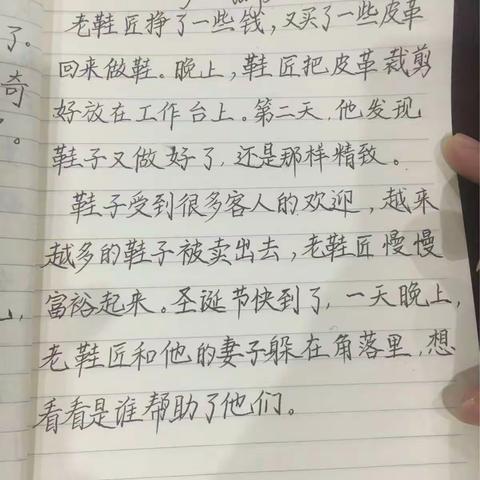 老鞋匠挣了一些钱，又买了一些皮革
回来做鞋。晚上，鞋匠把皮革裁剪
好放在工作台上。第二天，他发现
鞋子又做好了，还是那样精致。
鞋子受到很多客人的欢迎，越来
越多的鞋子被卖出去，老鞋匠慢慢
富裕起来。圣诞节快到了，一天晚上，
老鞋匠和他的妻子躲在角落里，想
看看是谁帮助了他们。
了。
奇
。